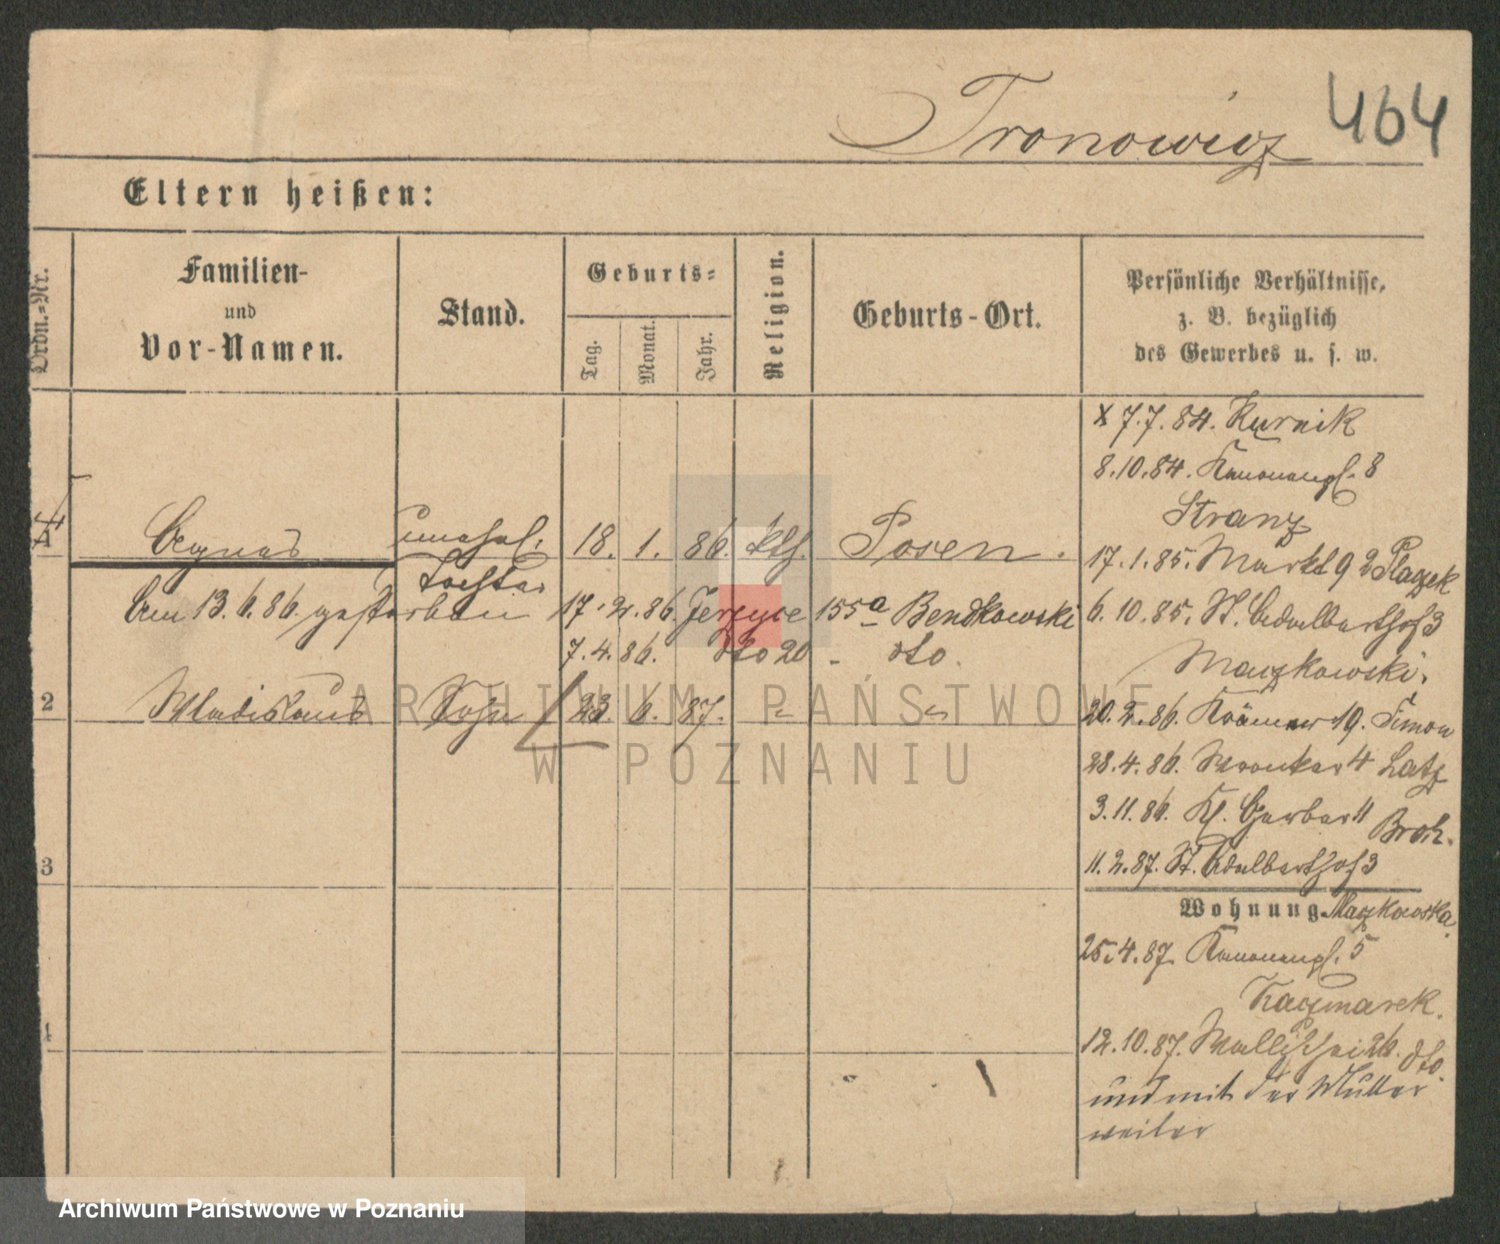 Tronowicz 464
Eltern heißen:
Ordn.-Nr.
Familien-
und
Vor-Namen.
Stand.
Geburts-
Tag.
Monat.
Jahr.
Religion.
Geburts-Ort.
Persönliche Verhältnisse,
z. B. bezüglich
des Gewerbes u. s. w.
x 7.7.84. Kurnik
8.10.84. Kanonenpl. 8
Stranz
1 Agnes unehel. 18. 1. 86. kth. Posen.
Tochter
17.1.85. Markt 92 Placzek
Am 13.6.86. gestorben 17.2.86. Jerzyce 155a Bendkowski
6.10.85. St. Adalberthof 3
7.4.86. dto 20 - dto.
Maczkowski.
2 Wladislaus Sohn 23. 6. 87. " "
20.2.86. Krämer 19. Simon
28.4.86. Wronker 4 Latz
3.11.86. Kl. Gerber 11 Broh.
3
11.2.87. St. Adalberthof 3
Wohnung. Maczkowska.
25.4.87. Kanonenpl. 5
Kaczmarek.
4
12.10.87. Wallischei 26. dto.
und mit der Mutter
weiter
ARCHIWUM PAŃSTWOWE
W POZNANIU
Archiwum Państwowe w Poznaniu